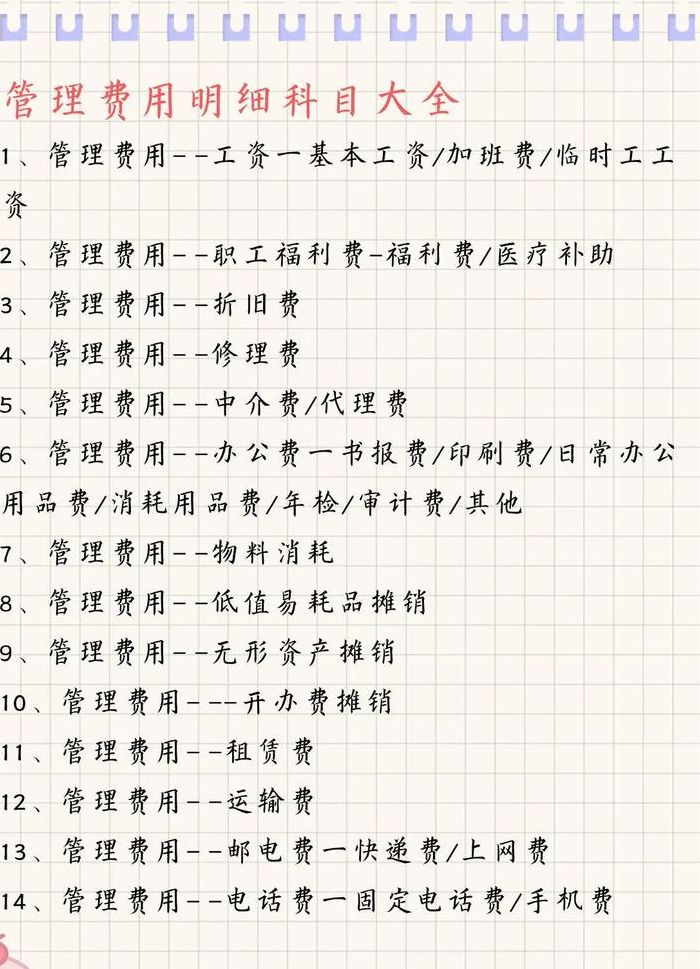 管理费用明细科目大全
1、管理费用--工资一基本工资/加班费/临时工工
资
2、管理费用--职工福利费-福利费/医疗补助
3、管理费用--折旧费
4、管理费用--修理费
5、管理费用--中介费/代理费
6、管理费用--办公费一书报费/印刷费/日常办公
用品费/消耗用品费/年检/审计费/其他
7、管理费用--物料消耗
8、管理费用--低值易耗品摊销
9、管理费用--无形资产摊销
10、管理费用---开办费摊销
11、管理费用--租赁费
12、管理费用--运输费
13、管理费用--邮电费一快递费/上网费
14、管理费用--电话费一固定电话费/手机费